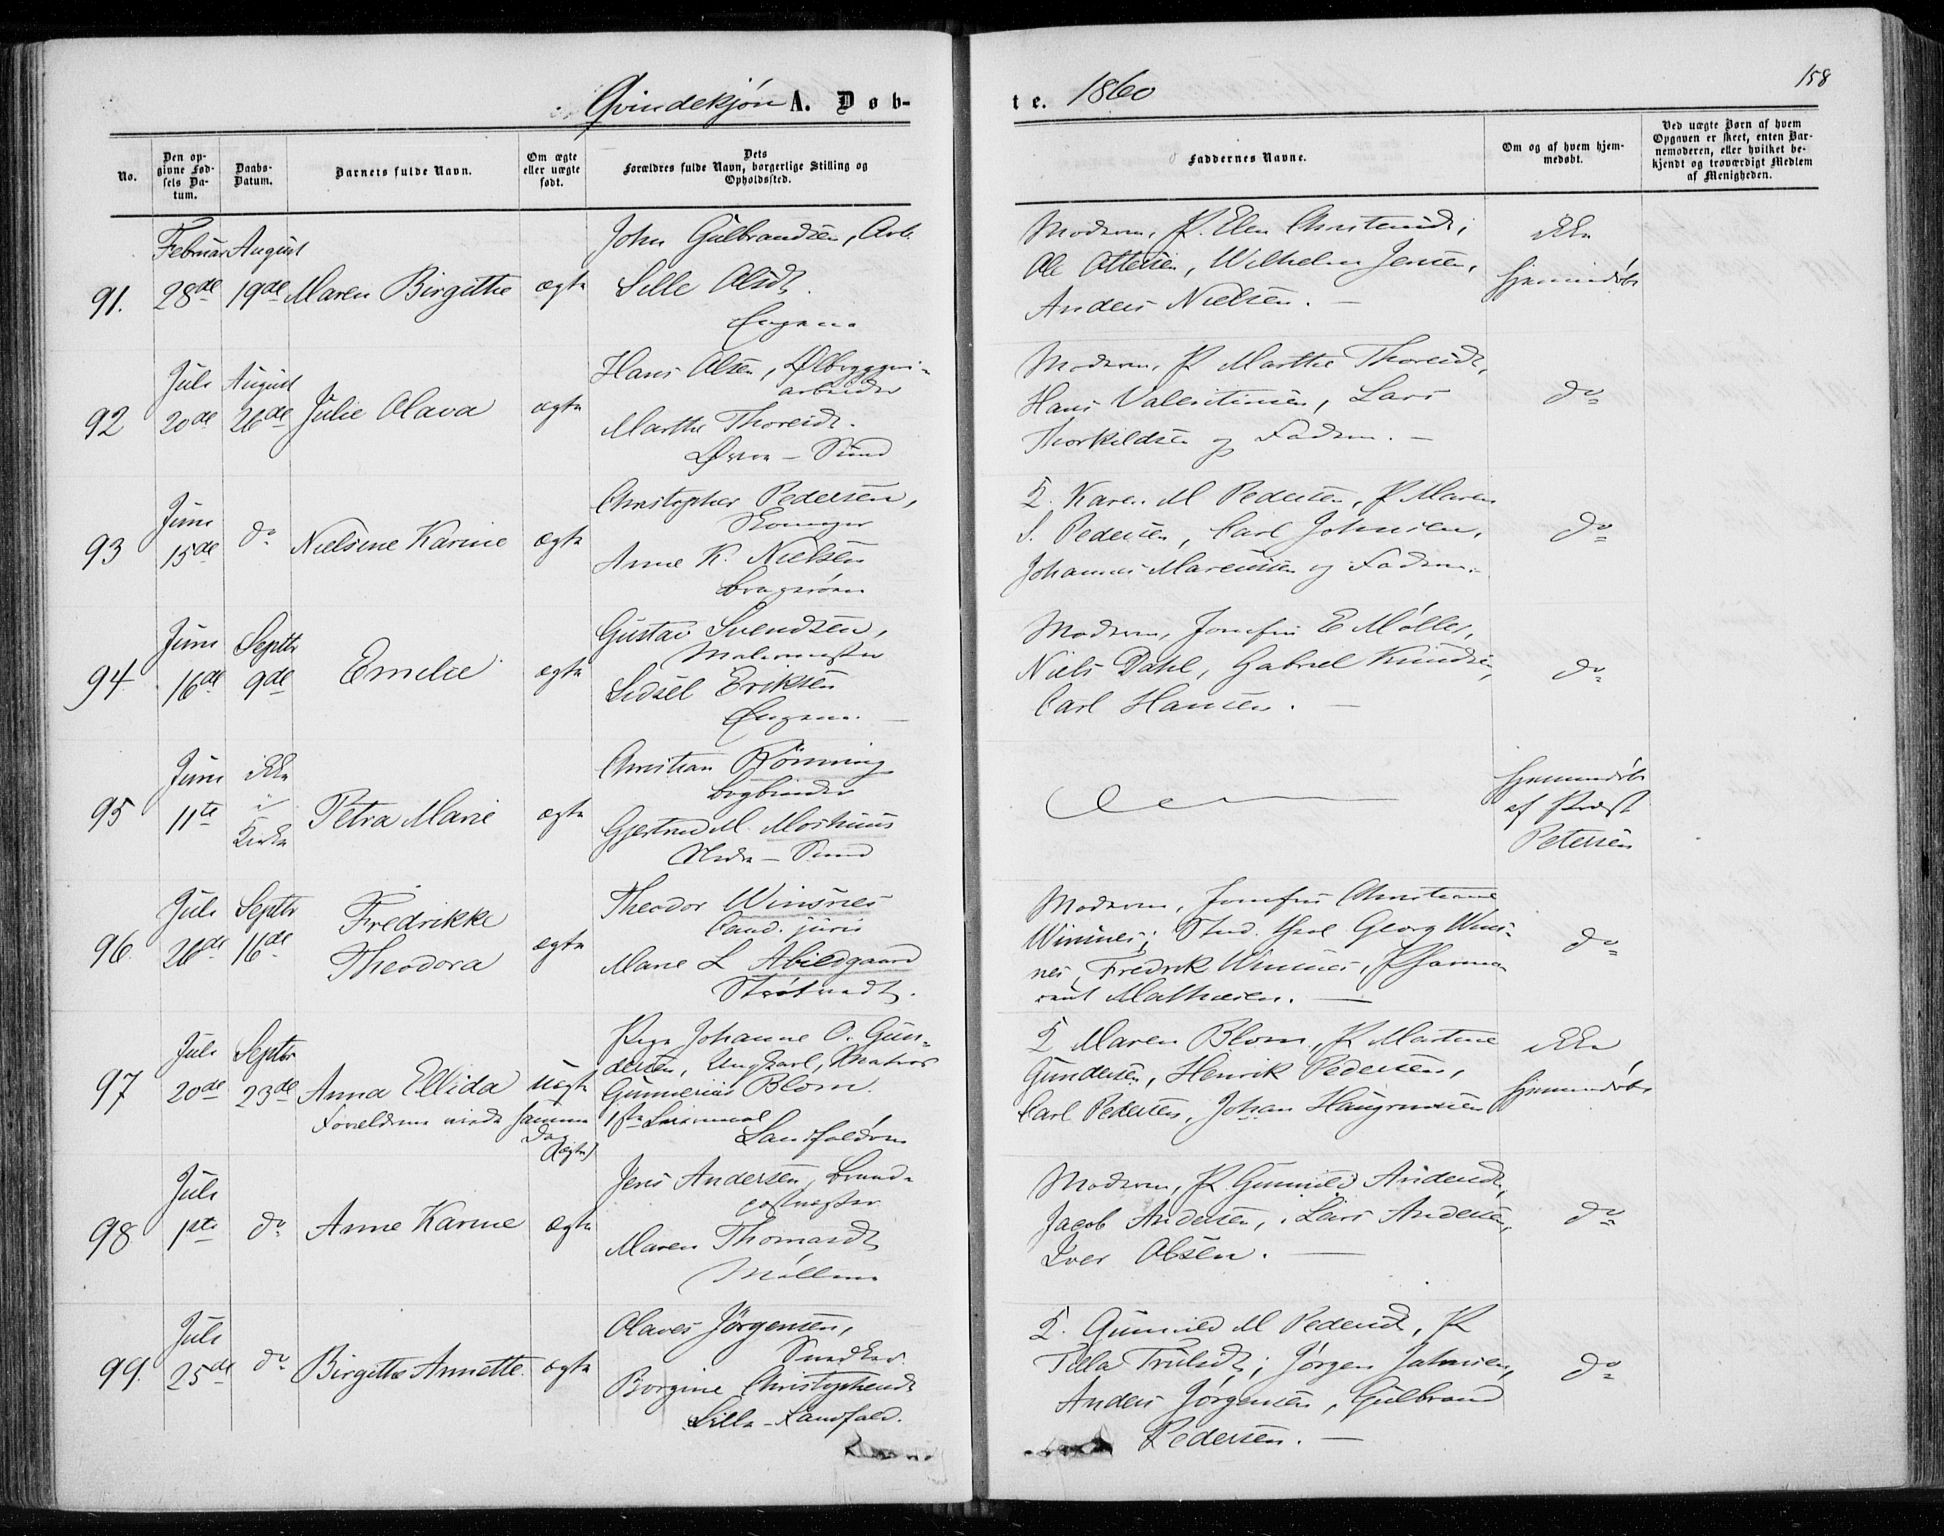 158
Qvindekjøn A. Døb-
te. 1860
No.
Den op-
givne Fød-
sels Da-
tum.
Daabs-
Datum.
Barnets fulde Navn.
Om ægte
eller uægte
født.
Dets
Forældres fulde Navn, borgerlige Stilling og
Opholdssted.
Faddernes Navne.
Om og af hvem hjem-
medøbt.
Ved uægte Børn af hvem
Opgaven er skeet, enten Bar-
nemoderen, eller hvilket be-
kjendt og troværdigt Medlem
af Menigheden.
91.
Februar
28de
August
19de
Maren Birgitte
ægte
John Gulbrandsen, Arb.
Sille Olsdt.
Engene
Moderen, P. Elen Christensdt,
Ole Ottersen, Wilhelm Jensen,
Anders Nielsen. —
ikke
hjemmedøbt
92
Juli
20de
August
26de
Julie Olava
ægte
Hans Olsen, Ølbryggeri-
arbeider
Marthe Thoresdt.
Øvre - Sund
Moderen, P Marthe Thoresdt,
Hans Valentinsen, Lars
Thorkildsen og Faderen. —
do
93
Juni
15de
do
Nielsine Karine
ægte
Christopher Pedersen,
Anne K. Nielsen
Bragerøen
K. Karen M Pedersen, P Maren
S. Pedersen, Carl Johnsen,
Johannes Marcussen og Faderen.
do
94
Juni
16de
Septbr
9de
Emelie
ægte
Gustav Svendsen,
Malermester
Sidsel Eriksen
Engene.
Moderen, Josefine E Møller,
Niels Dahl, Gabriel Knudsen,
Carl Hansen. —
do
95
Juni
11te
ikke
i
Kirke
Petra Marie
ægte
Christian Rønning
Bogbinder
Gjertrud M. Moshuus
Nedre - Sund
hjemmedøbt
af Præst
Petersen
96.
Juli
26de
Septbr
16de
Fredrikke
Theodora
ægte
Theodor Winsnes
Cand. juris
Marie L Abildgaard
Strøtvedt.
Moderen, Josefine Christiane
Winsnes; Stud. theol Georg Wins-
nes, Fredrik Winsnes, Pharma-
ceut Mathiesen. —
do
97
Juli
20de
Septbr
23de
Anna Ellida
Forældrene viede samme
Dag
(ægte)
uægte
Pige Johanne O. Gun-
dersen, Ungkarl, Matros
Gunnerius Blom.
1ste Leiermaal
Landfaldøen
K Maren Blom, P Martine
Gundersen, Henrik Pedersen,
Carl Pedersen, Johan Haagensen
ikke
hjemmedøbt
98
Juli
1ste
do
Anne Karine
ægte
Jens Andersen, Brand-
Maren Thomasdt
Møllen
Moderen, P. Gunnild Andersdt,
Jacob Andersen, Lars Andersen,
Iver Olsen. —
do
99.
Juli
25de
do
Birgitte Annette.
ægte
Olaves Jørgensen,
Snedker.
Borgine Christophersdt
Lille - Landfald.
K. Gunnild M Pedersdt, P
Pella Trulsdt; Jørgen Johnsen,
Anders Jørgensen, Gulbrand
Pedersen. —
do